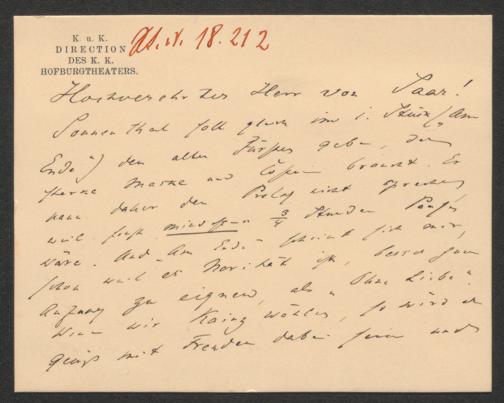 K. u. K.
DIRECTION
DES K. K.
HOFBURGTHEATERS.
18.212
Hochverehrter Herr von Saar!
Sonnenthal soll gleich im 1. Stück („Am
Ende“) den alten Fürsten geben, der
starke Maske und Costüm braucht. Er
kann daher den Prolog nicht sprechen,
weil sonst mindestens ¾ Stunden Pause
wäre. Auch „Am Ende“ scheint sich mir,
schon weil es Novität ist, besser zum
Anfang zu eignen, als „Ohne Liebe“.
Wenn wir Kainz wählen, so wird er
gewiß mit Freuden dabei sein und